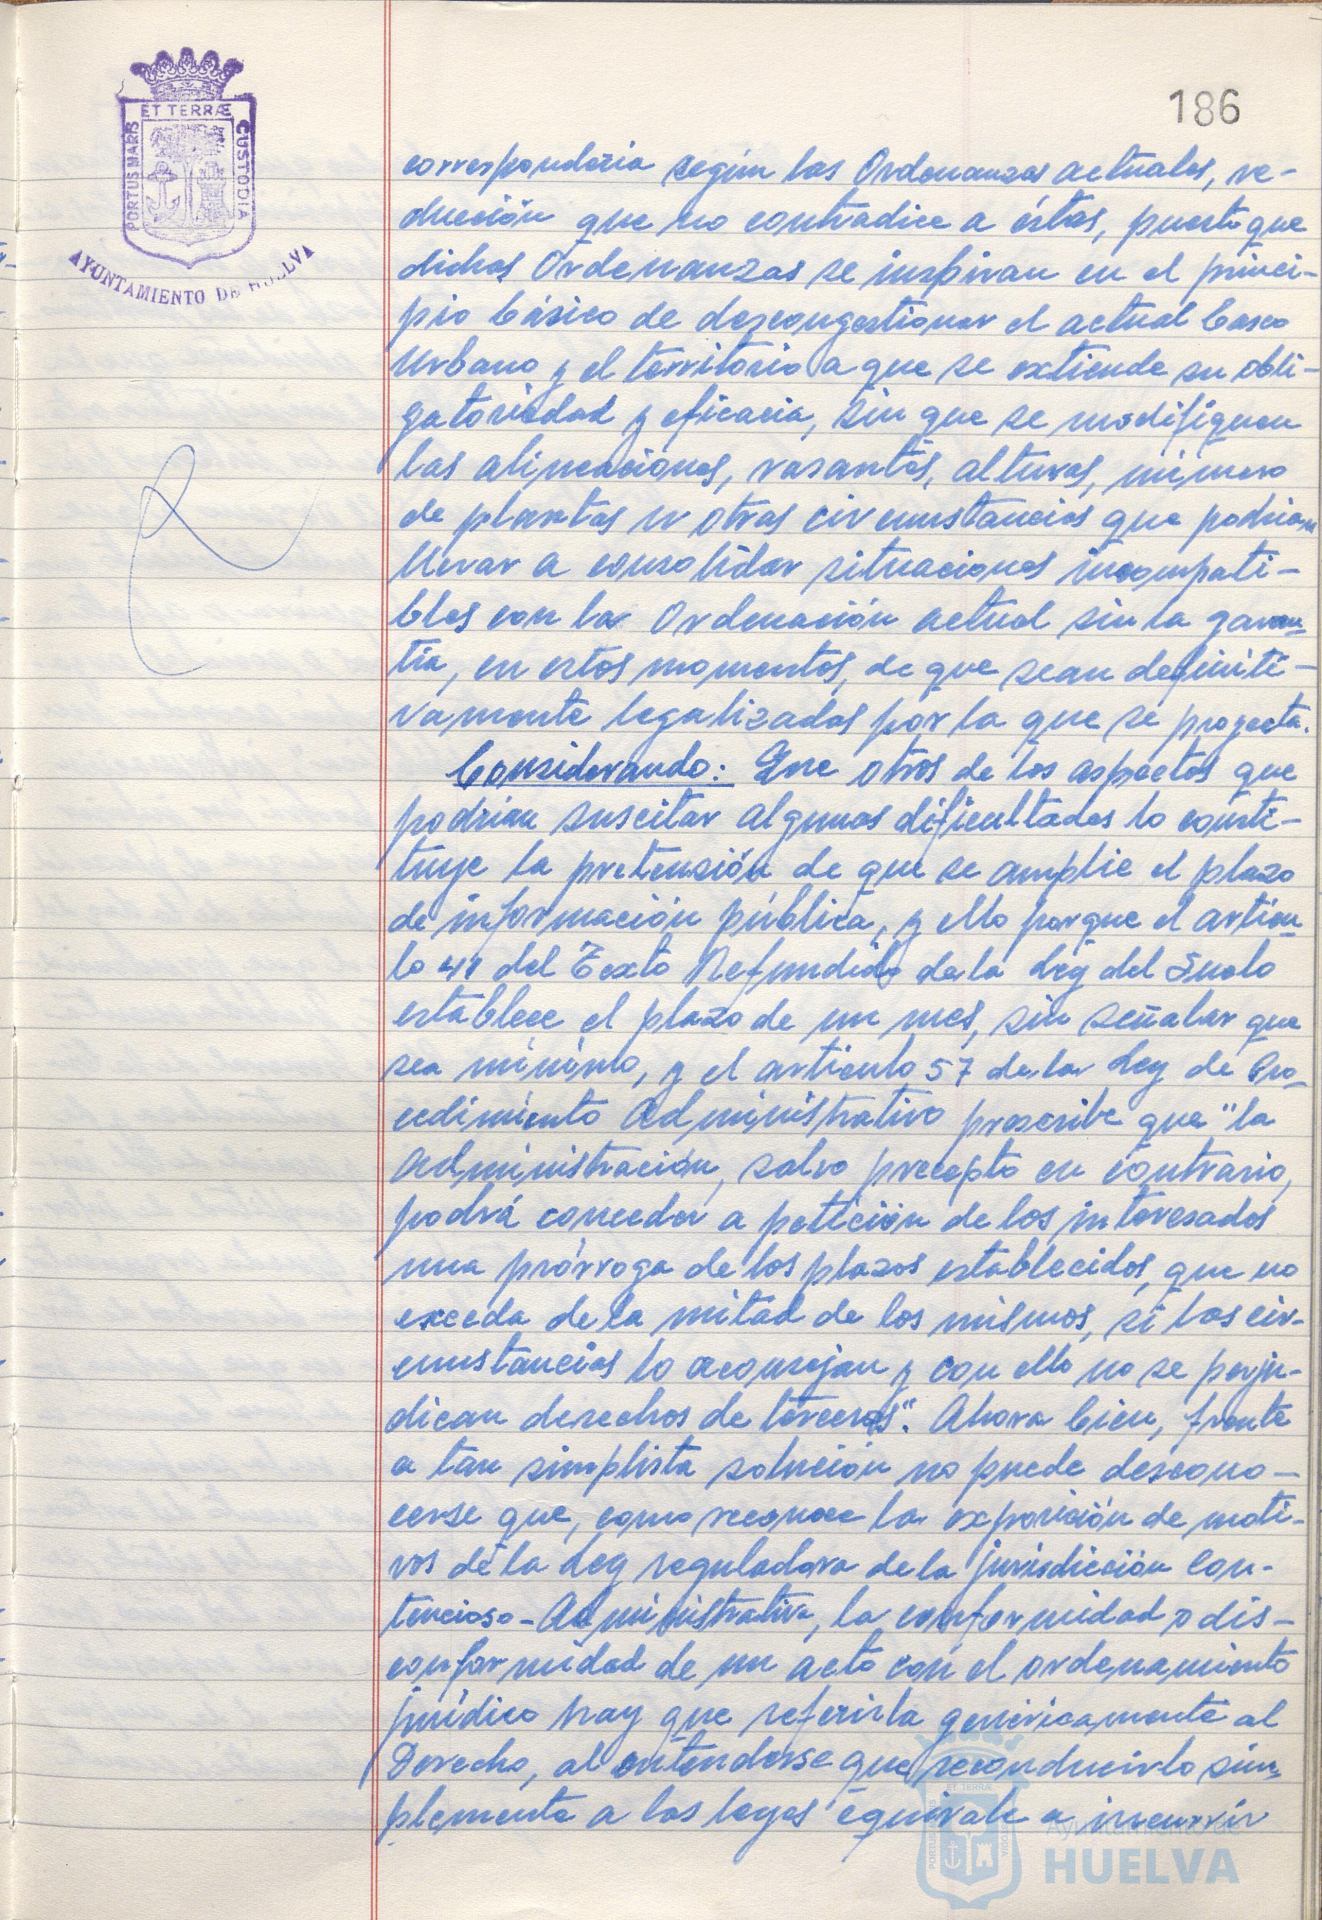 ET TERRÆ
PORTUS MARIS
CUSTODIA
AYUNTAMIENTO DE HUELVA
186
correspondería según las Ordenanzas actuales, re-
ducción que no contradice a éstas, puesto que
dichas Ordenanzas se inspiran en el princi-
pio básico de descongestionar el actual Casco
Urbano y el territorio a que se extiende su obli-
gatoriedad y eficacia, sin que se modifiquen
las alineaciones, rasantes, alturas, número
de plantas u otras circunstancias que podrían
llevar a consolidar situaciones incompati-
bles con la Ordenación actual sin la garan-
tía, en estos momentos, de que sean definiti-
vamente legalizadas por la que se proyecta.
Considerando: Que otros de los aspectos que
podrían suscitar algunas dificultades lo consti-
tuye la pretensión de que se amplie el plazo
de información pública, y ello porque el artícu-
lo 41 del Texto Refundido de la Ley del Suelo
establece el plazo de un mes, sin señalar que
sea mínimo, y el artículo 57 de la Ley de Pro-
cedimiento Administrativo prescribe que "la
Administración, salvo precepto en contrario,
podrá conceder a petición de los interesados
una prórroga de los plazos establecidos, que no
exceda de la mitad de los mismos, si las cir-
cunstancias lo aconsejan y con ello no se perju-
dican derechos de terceros". Ahora bien, frente
a tan simplista solución no puede descono-
cerse que, como reconoce la exposición de moti-
vos de la Ley reguladora de la jurisdicción Con-
tencioso-Administrativa, la conformidad o dis-
conformidad de un acto con el ordenamiento
jurídico hay que referirla genéricamente al
Derecho, al entenderse que reconducirlo sim-
plemente a las leyes equivale a incurrir
ET TERRÆ
PORTUS MARIS
CUSTODIA
Ayuntamiento de
HUELVA